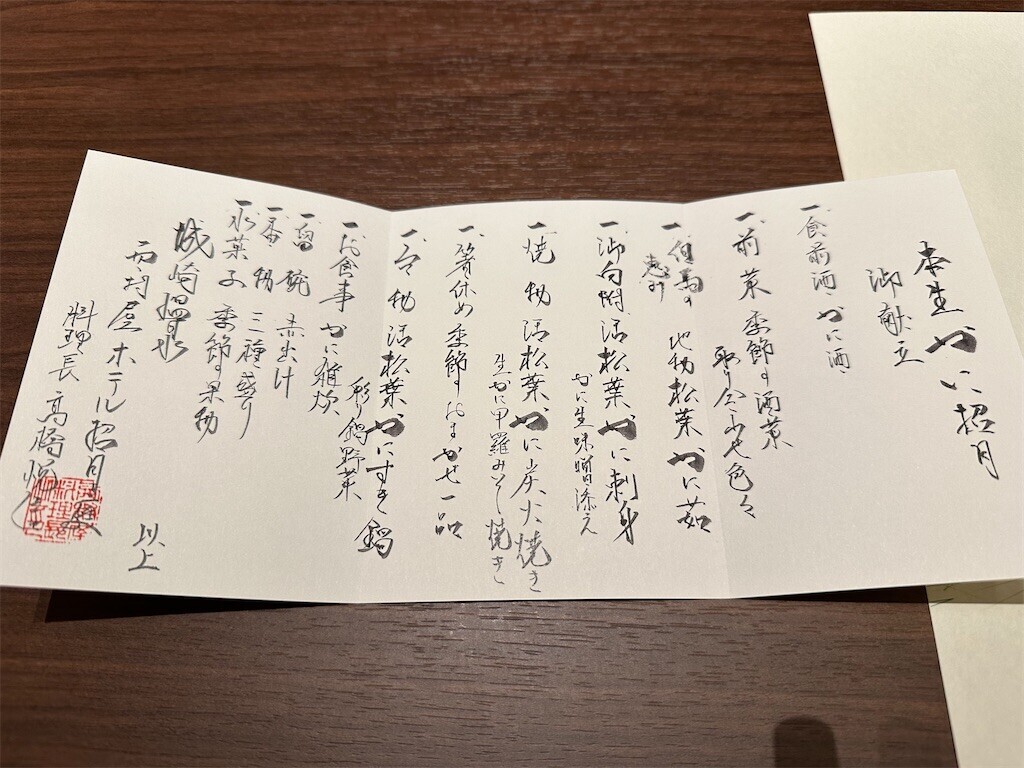 本生かに招月
御献立
一、食前酒 かに酒
一、前菜 季節の酒菜
取り合わせ色々
一、但馬の恵み 地物松葉かに茹
一、御向附 活松葉かに刺身
かに生味噌添え
一、焼物 活松葉かに炭火焼き
生かに甲羅みそ焼き
一、箸休め 季節のおまかせ一品
一、合物 活松葉かにすき鍋
彩り鍋野菜
一、お食事 かに雑炊
一、留椀 赤出汁
一、香物 三種盛り
一、水菓子 季節の果物
城崎温泉
西村屋ホテル招月庭
料理長 高橋悦
以上